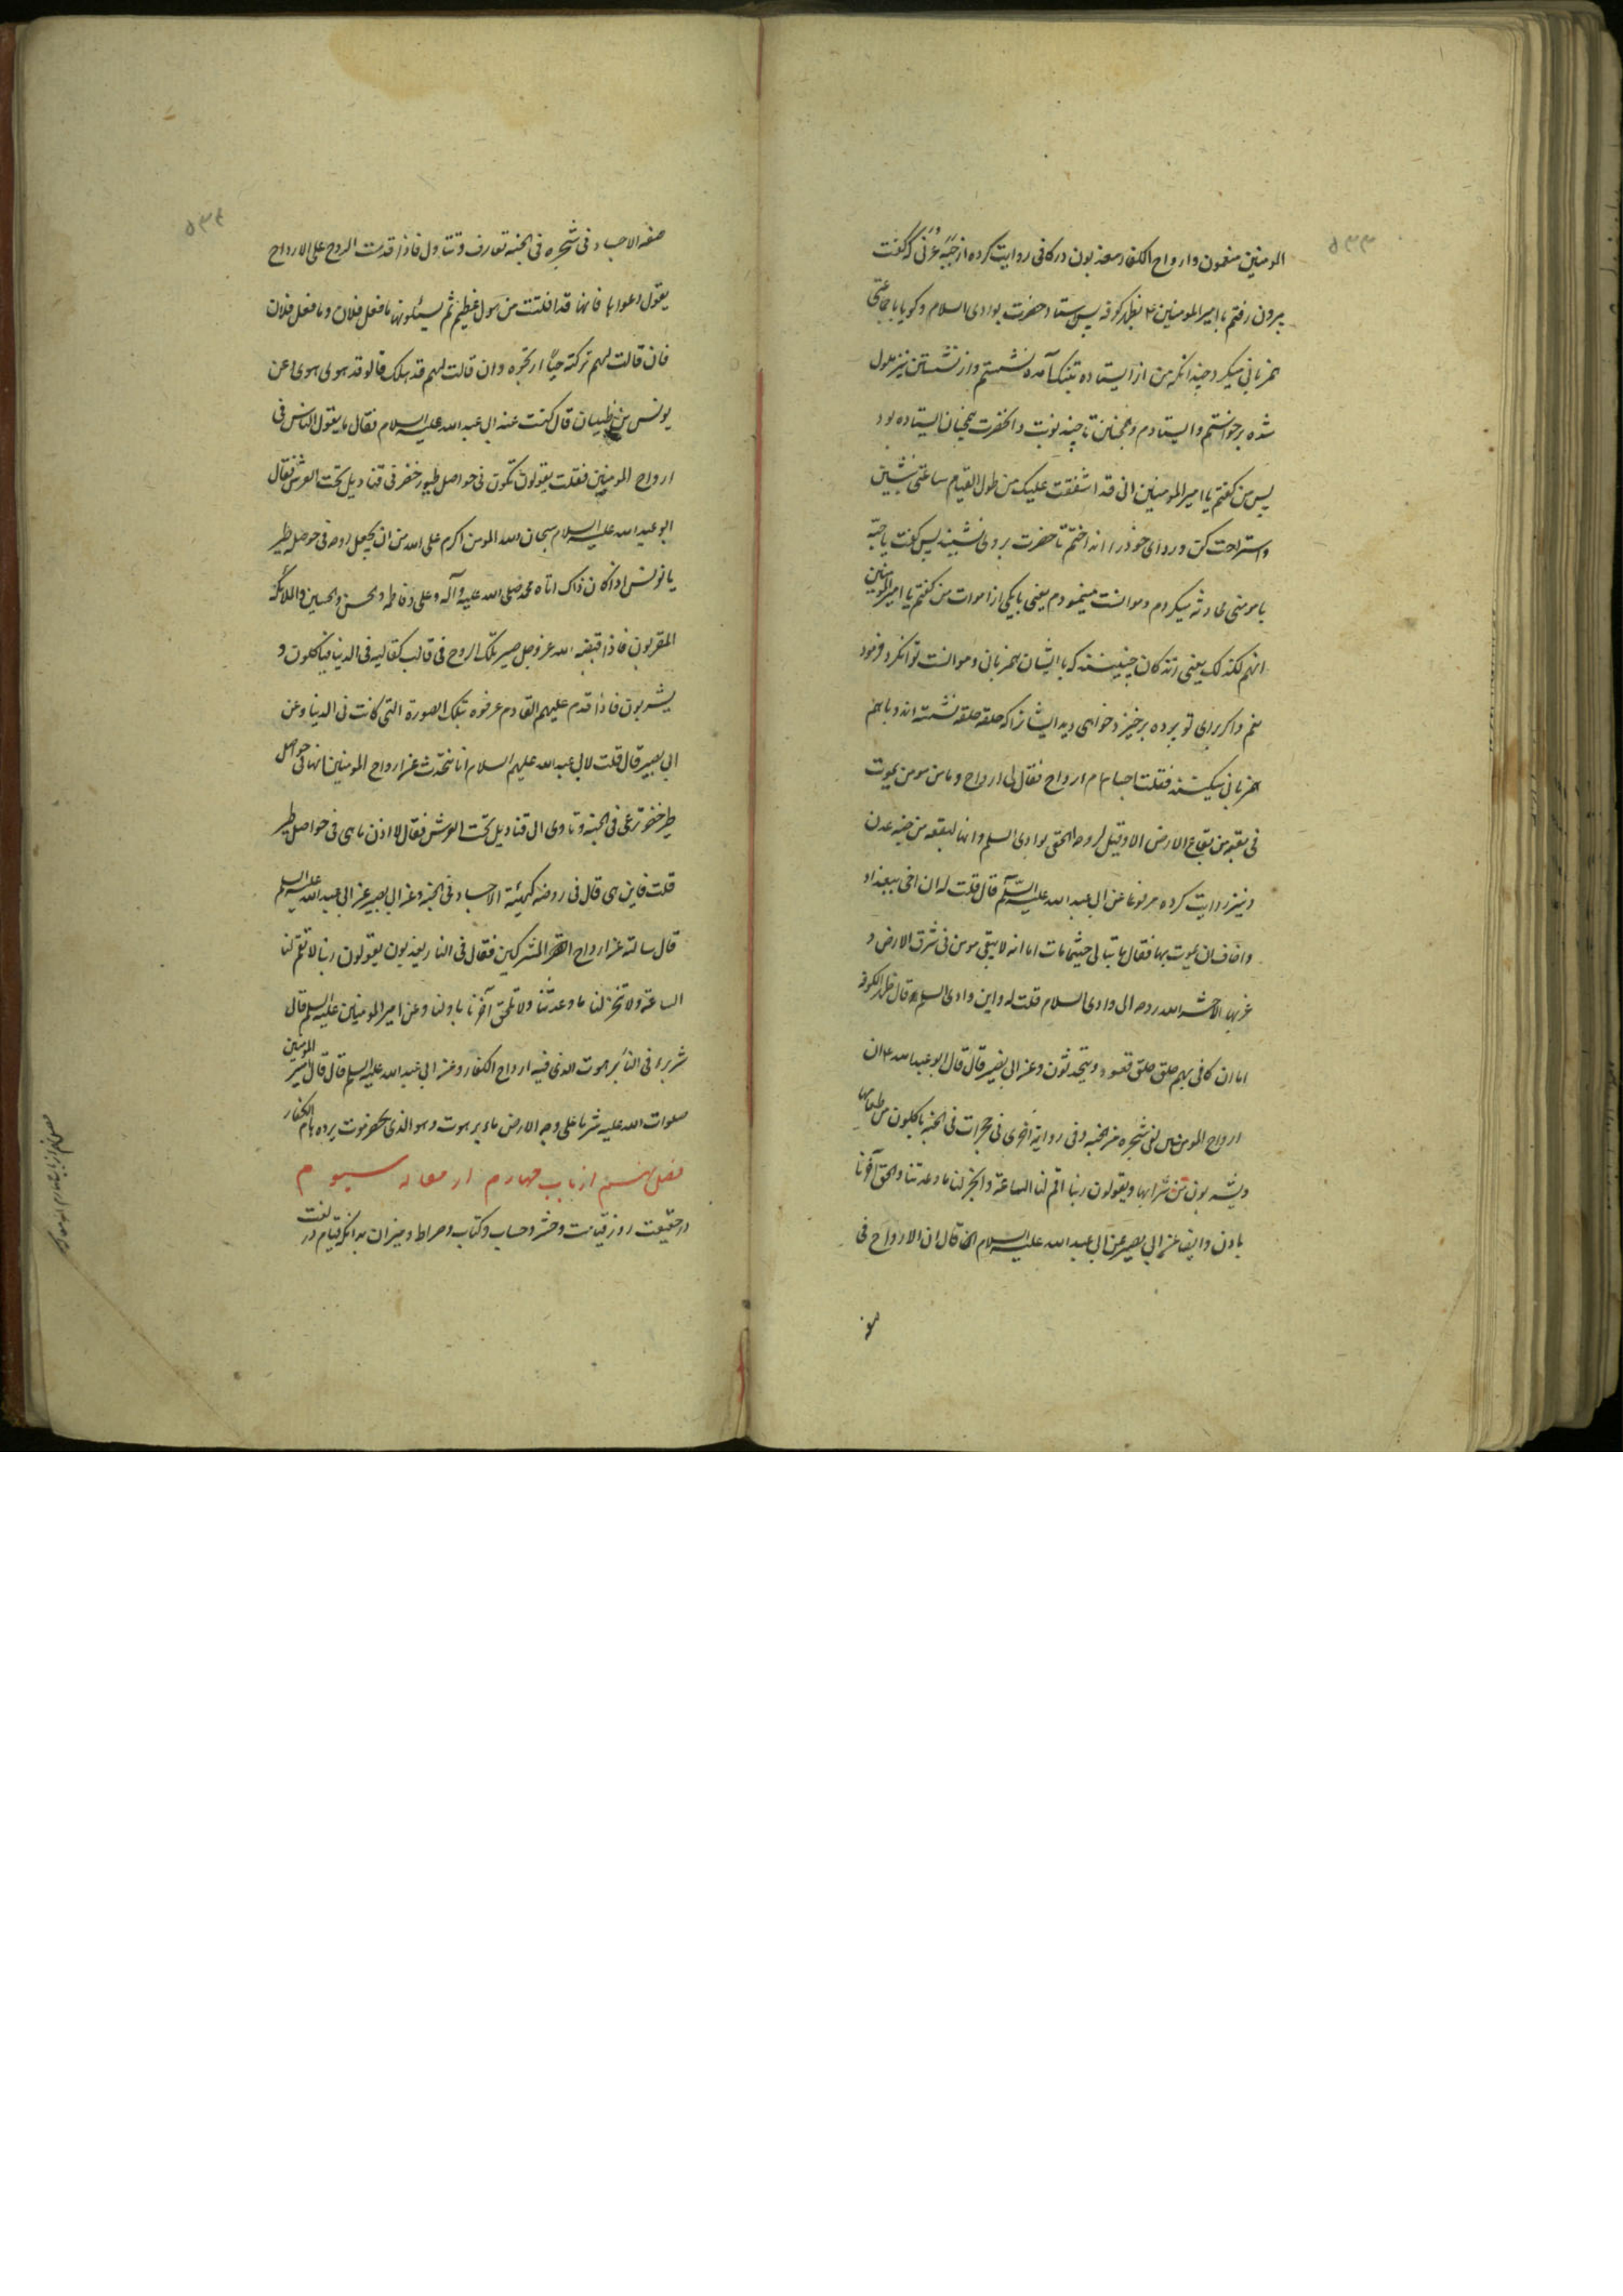 ۵۳۳
المومنین منعمون وارواح الکفار معذبون در کافی روایت کرده از حبّه عُرَنی که گفت
بیرون رفتم با امیرالمومنین ع بظهر کوفه پس ستاد حضرت بوادی السلام و گویا با جماعتی
همزبانی میکرد چندانکه من از ایستاده بتنک آمده نشستم و از نشستن نیز ملول
شده برخواستم و ایستادم و همچنان تا چند نوبت و انحضرت همچنان ایستاده بود
پس من کفتم یا امیرالمومنین انی قد اشفقت علیک من طول القیام ساعتی بنشین
و استراحت کن و ردای خود را انداختم تا حضرت بروی نشیند پس کفت یا حبّه
با مومنی محادثه میکردم و موانست مینمودم یعنی با یکی از اموات من کفتم یا امیرالمومنین
انهم لکذلک یعنی مردکان چنینند که با ایشان همزبانی و موانست توانکرد فرمود
نعم و اکر برای تو پرده برخیزد خواهی دید ایشانرا که حلقه حلقه نشسته اند و با هم
همزبانی میکنند فقلت اجسام ام ارواح فقال لی ارواح و ما من مومن یموت
فی بقعه من بقاع الارض الا وقیل لروحه الحقی بوادی السلم وانها لبقعه من جنه عدن
و نیز روایت کرده مرفوعا عن ابی عبد الله علیه السّلم قال قلت له ان اخی ببغداد
واخاف ان یموت بها فقال ما تبالی حیثما مات اما انه لا یبقی مومن فی شرق الارض و
غربها الا حشر الله روحه الی وادی السلام قلت له واین وادی السلم قال ظهر الکوفه
اما ان کانی بهم حلق حلق قعود یتحدثون وعن ابی بصیر قال قال ابو عبد الله ع ان
ارواح المومنین لفی شجره من الجنه وفی روایة اخری فی حجرات فی الجنه یاکلون من طعامها
ویشربون من شرابها ویقولون ربنا اقم لنا الساعة وانجز لنا ما وعدتنا والحق آخرنا
باولنا وایضا عن ابی بصیر عن ابی عبد الله علیه السلام انه قال ان الارواح فی
صفه
۵۳۴
صفه الاجساد فی شجره فی الجنه تعارف وتتساول فاذا قدمت الروح علی الارواح
یقول دعوها فانها قد افلتت من هول عظیم ثم یسئلونها ما فعل فلان وما فعل فلان
فان قالت لهم ترکته حیّا ارتجوه وان قالت لهم قد هلک قالو قد هوی هوی وعن
یونس بن ظبیان قال کنت عند ابی عبد الله علیه السلام فقال ما یقول الناس فی
ارواح المومنین فقلت یقولون تکون فی حواصل طیور خضر فی قنادیل تحت العرش فقال
ابو عبد الله علیه السلام سبحان الله المومن اکرم علی الله من ان یجعل روحه فی حوصله طیر
یا یونس اذا کان ذاک اتاه محمد صلی الله علیه وآله وعلی وفاطمه والحسن والحسین والملائکه
المقربون فاذا قبضه الله عز وجل صیر تلک الروح فی قالب کقالبه فی الدنیا فیاکلون و
یشربون فاذا قدم علیهم القادم عرفوه بتلک الصورة التی کانت فی الدنیا وعن
ابی بصیر قال قلت لابی عبد الله علیهم السلام انا نتحدّث عن ارواح المومنین انها فی حواصل
طیر خضر ترعی فی الجنه وتاوی الی قنادیل تحت العرش فقال لا اذن ما هی فی حواصل طیر
قلت فاین هی قال فی روضه کهیئة الاجساد فی الجنة وعن ابی بصیر عن ابی عبد الله علیه السلم
قال سالته عن ارواح المشرکین فقال فی النار یعذبون یقولون ربنا لا تقم لنا
الساعة ولا تنجز لنا ما وعدتنا ولا تلحق آخرنا باولنا وعن امیر المومنین علیه السلم قال
شر بیر فی النار برهوت الذی فیه ارواح الکفار وعن ابی عبد الله علیه السلم قال قال امیر المومنین
صلوات الله علیه شر ماء علی وجه الارض ماء برهوت وهو الذی بحضرموت یرده هام الکفار
فصل هشتم از باب چهارم از مقاله سیوم
در حقیقت روز قیامت و حشر و حساب و کتاب و صراط و میزان بدانکه قیام در لغت